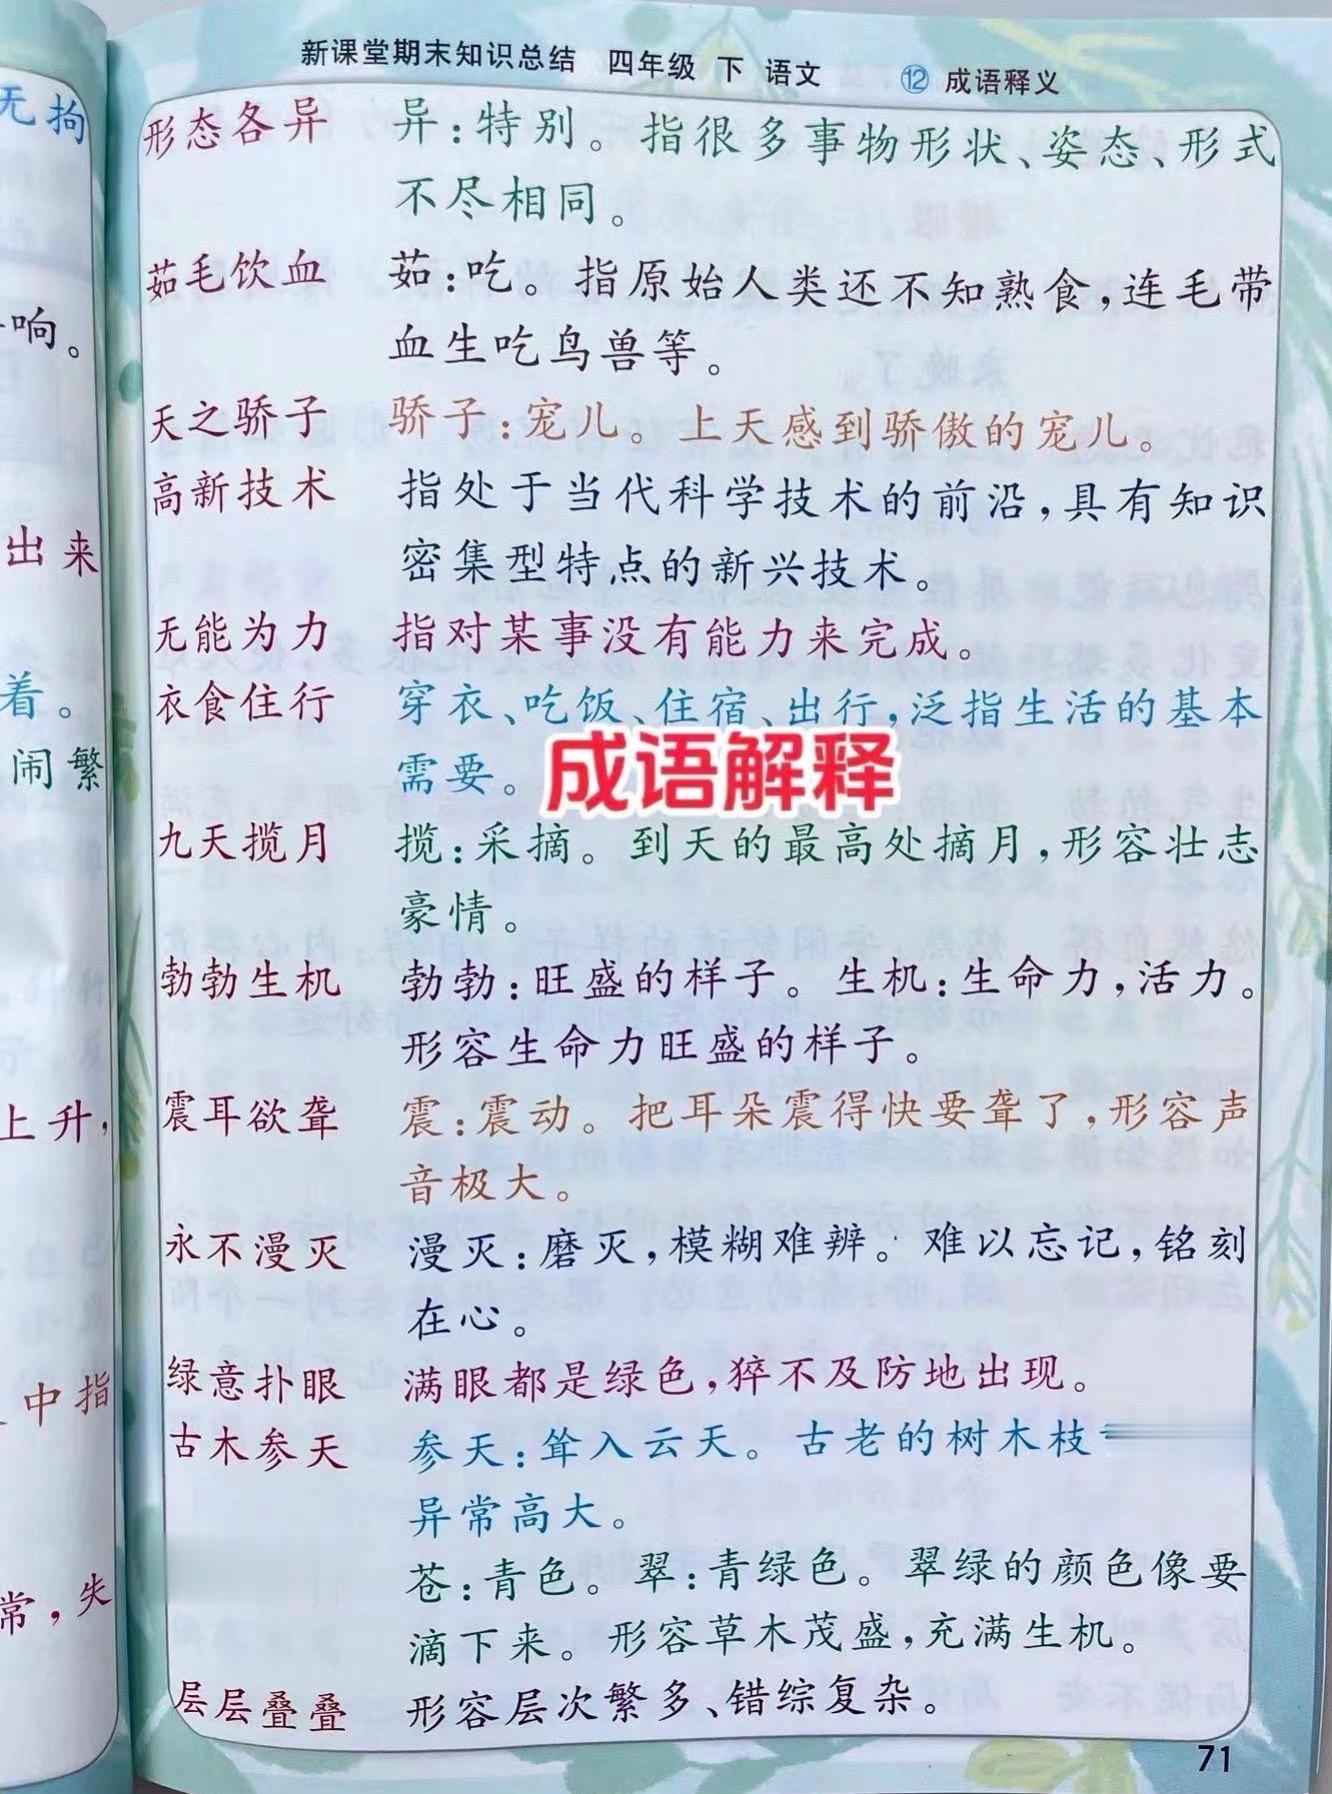 新课堂期末知识总结 四年级 下 语文 ⑫ 成语释义
形态各异 异：特别。指很多事物形状、姿态、形式
不尽相同。
茹毛饮血 茹：吃。指原始人类还不知熟食，连毛带
血生吃鸟兽等。
天之骄子 骄子：宠儿。上天感到骄傲的宠儿。
高新技术 指处于当代科学技术的前沿，具有知识
密集型特点的新兴技术。
无能为力 指对某事没有能力来完成。
衣食住行 穿衣、吃饭、住宿、出行，泛指生活的基本
需要。
成语解释
九天揽月 揽：采摘。到天的最高处摘月，形容壮志
豪情。
勃勃生机 勃勃：旺盛的样子。生机：生命力，活力。
形容生命力旺盛的样子。
震耳欲聋 震：震动。把耳朵震得快要聋了，形容声
音极大。
永不漫灭 漫灭：磨灭，模糊难辨。难以忘记，铭刻
在心。
绿意扑眼 满眼都是绿色，猝不及防地出现。
古木参天 参天：耸入云天。古老的树木枝
异常高大。
苍：青色。翠：青绿色。翠绿的颜色像要
滴下来。形容草木茂盛，充满生机。
层层叠叠 形容层次繁多、错综复杂。
71
无拘
响。
出来
着。
闹繁
上升，
中指
常，失